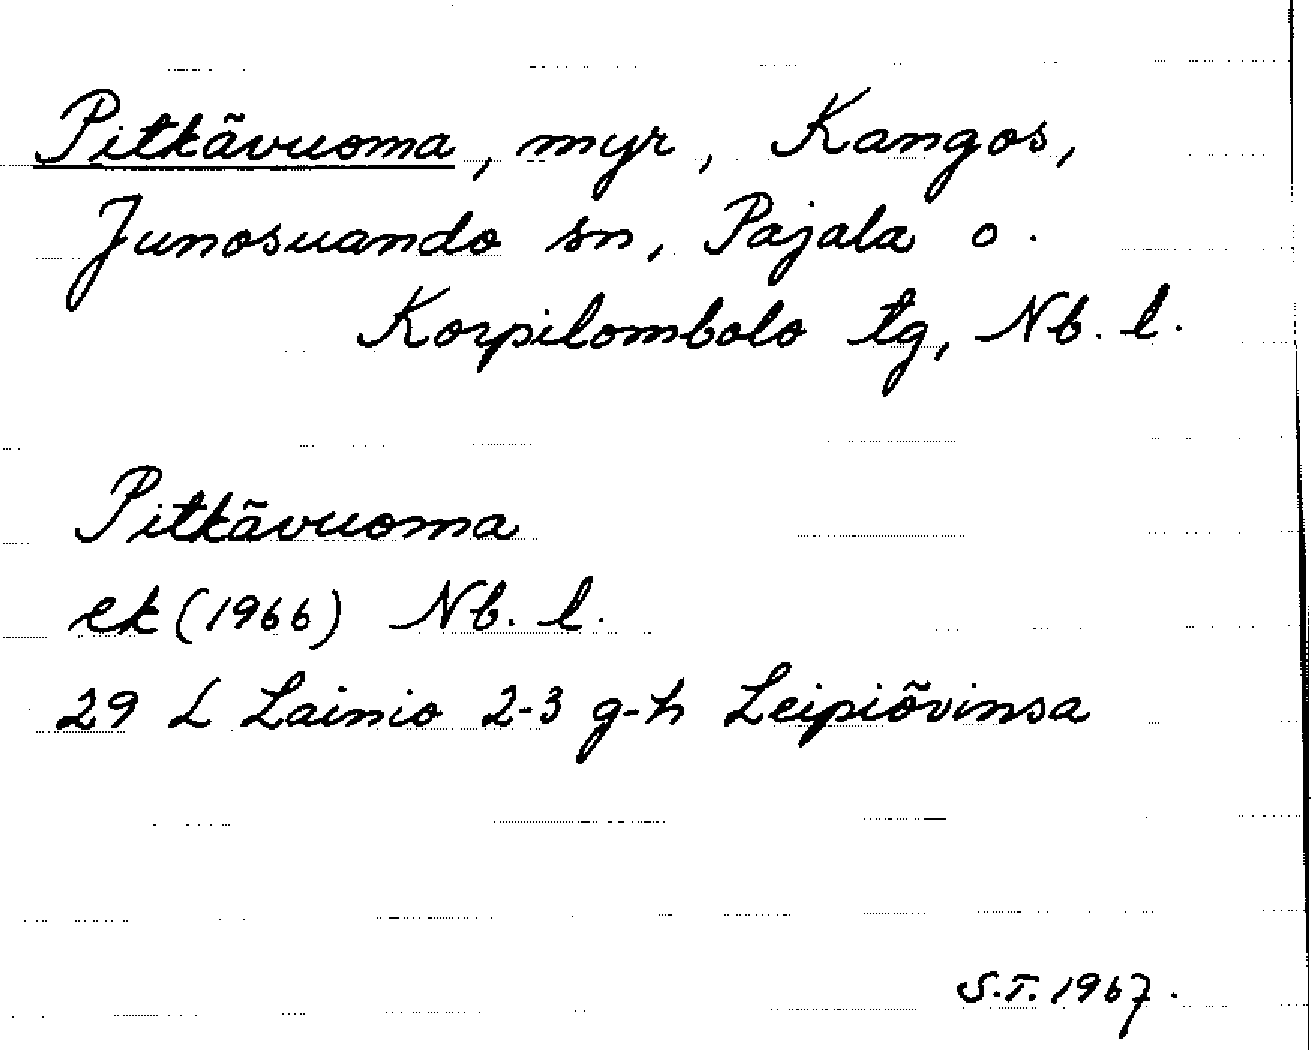 Pitkävuoma, myr, Kangos,
Junosuando sn, Pajala o.
Korpilombolo tg, Nb. l.
Pitkävuoma
ek (1966) Nb. l.
29 L Lainio 2-3 g-h Leipiövinsa
S.T. 1967.